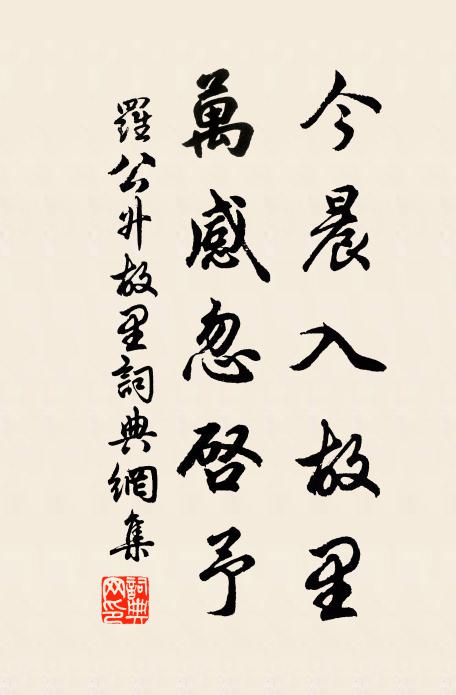 今晨入故里
萬感忽啓予
羅公升故里詞典網集
詞典網印